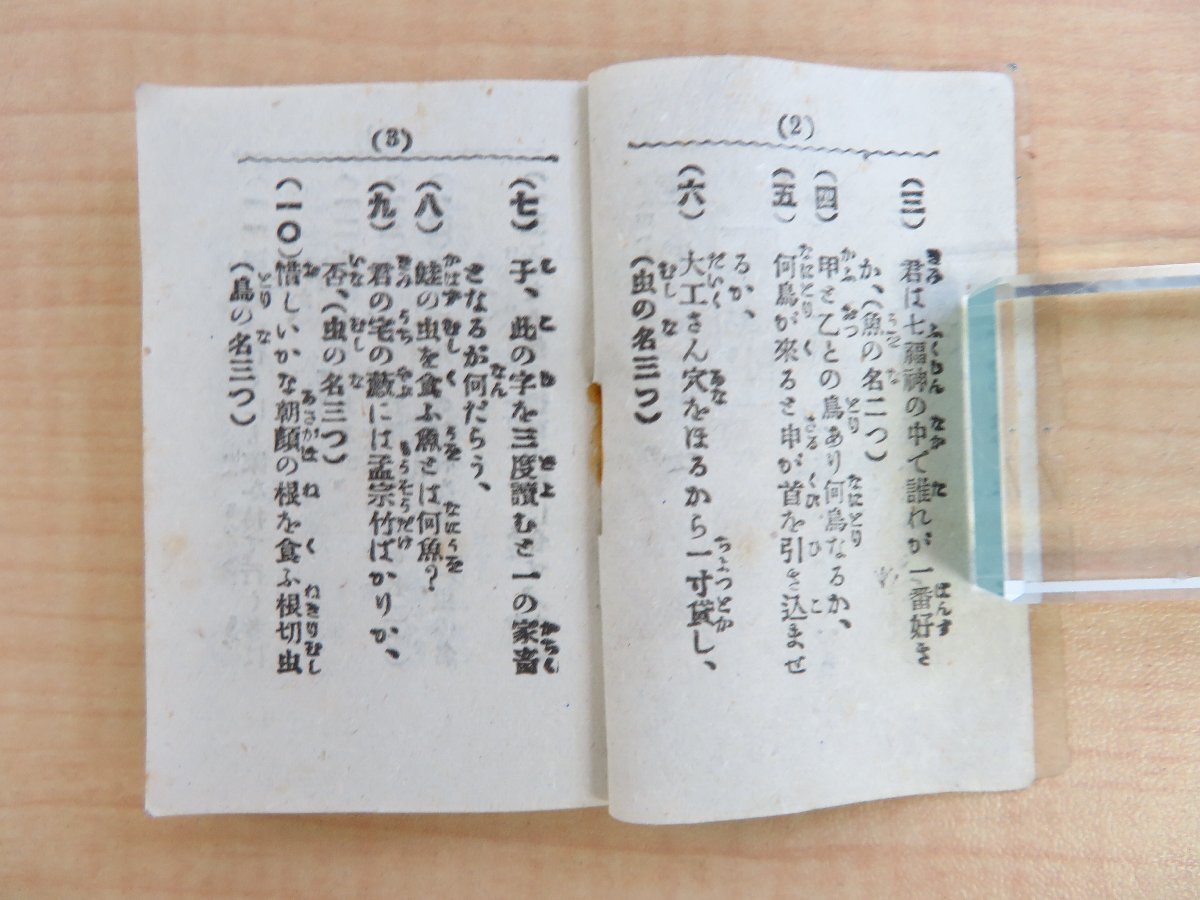 (2)
(三) 君は七福神の中で誰れが一番好き
か、(魚の名二つ)
(四) 甲と乙との鳥あり何鳥なるか、
(五) 何鳥が來ると申が首を引き込ませ
るか、
(六) 大工さん穴をほるから一寸貸し、
(虫の名三つ)
(3)
(七) 子、此の字を三度讀むと一の家畜
となるが何だらう、
(八) 蛙の虫を食ふ魚とは何魚?
(九) 君の宅の藪には孟宗竹ばかりか、
否、(虫の名三つ)
(一〇) 惜しいかな朝顔の根を食ふ根切虫
(鳥の名三つ)